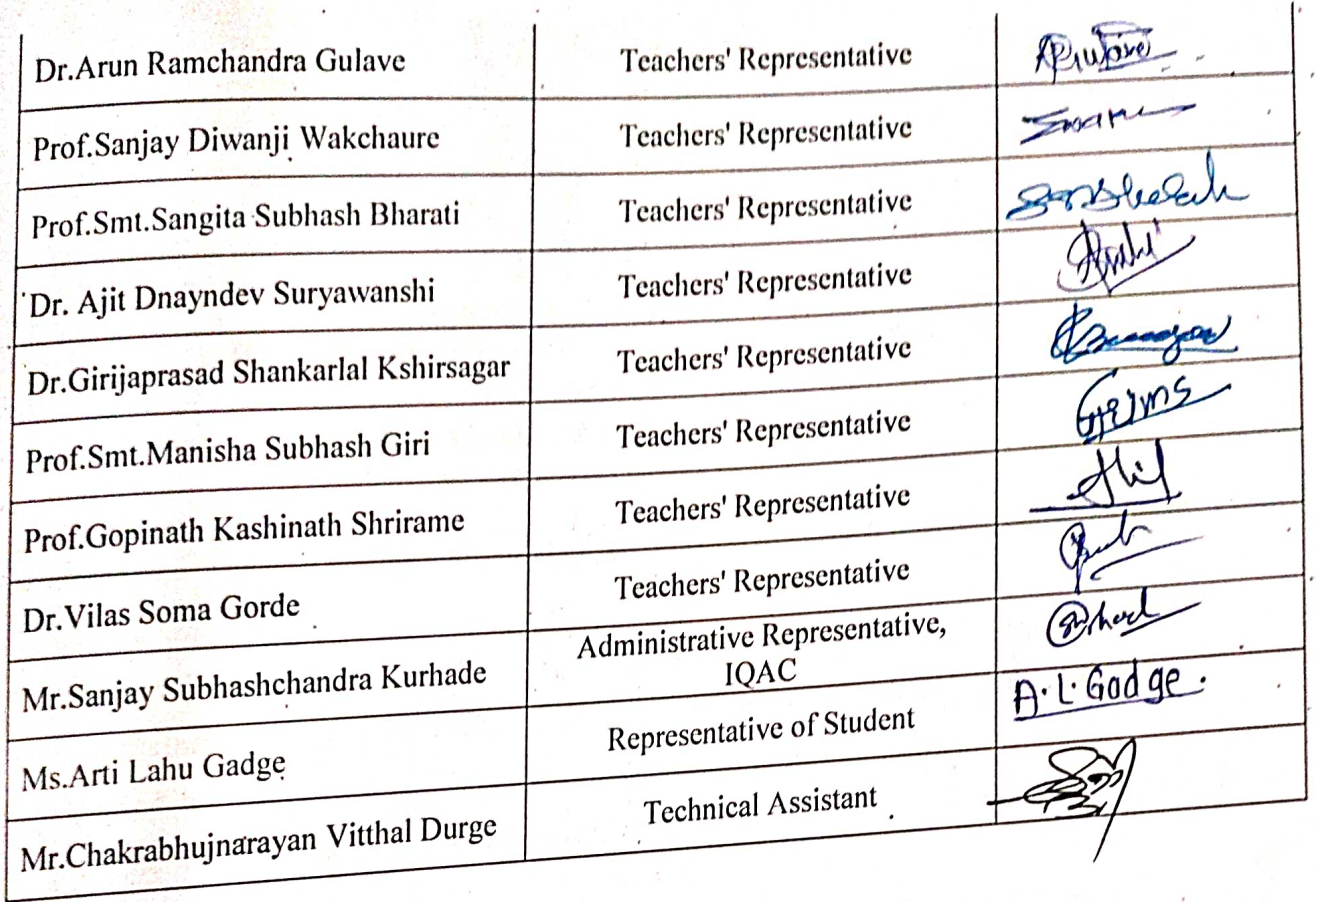 Dr.Arun Ramchandra Gulave Teachers' Representative
Prof.Sanjay Diwanji Wakchaure Teachers' Representative
Prof.Smt.Sangita Subhash Bharati Teachers' Representative
Dr. Ajit Dnayndev Suryawanshi Teachers' Representative
Dr.Girijaprasad Shankarlal Kshirsagar Teachers' Representative
Prof.Smt.Manisha Subhash Giri Teachers' Representative
Prof.Gopinath Kashinath Shrirame Teachers' Representative
Dr.Vilas Soma Gorde Teachers' Representative
Mr.Sanjay Subhashchandra Kurhade Administrative Representative,
IQAC
Ms.Arti Lahu Gadge Representative of Student A.L.Gadge.
Mr.Chakrabhujnarayan Vitthal Durge Technical Assistant